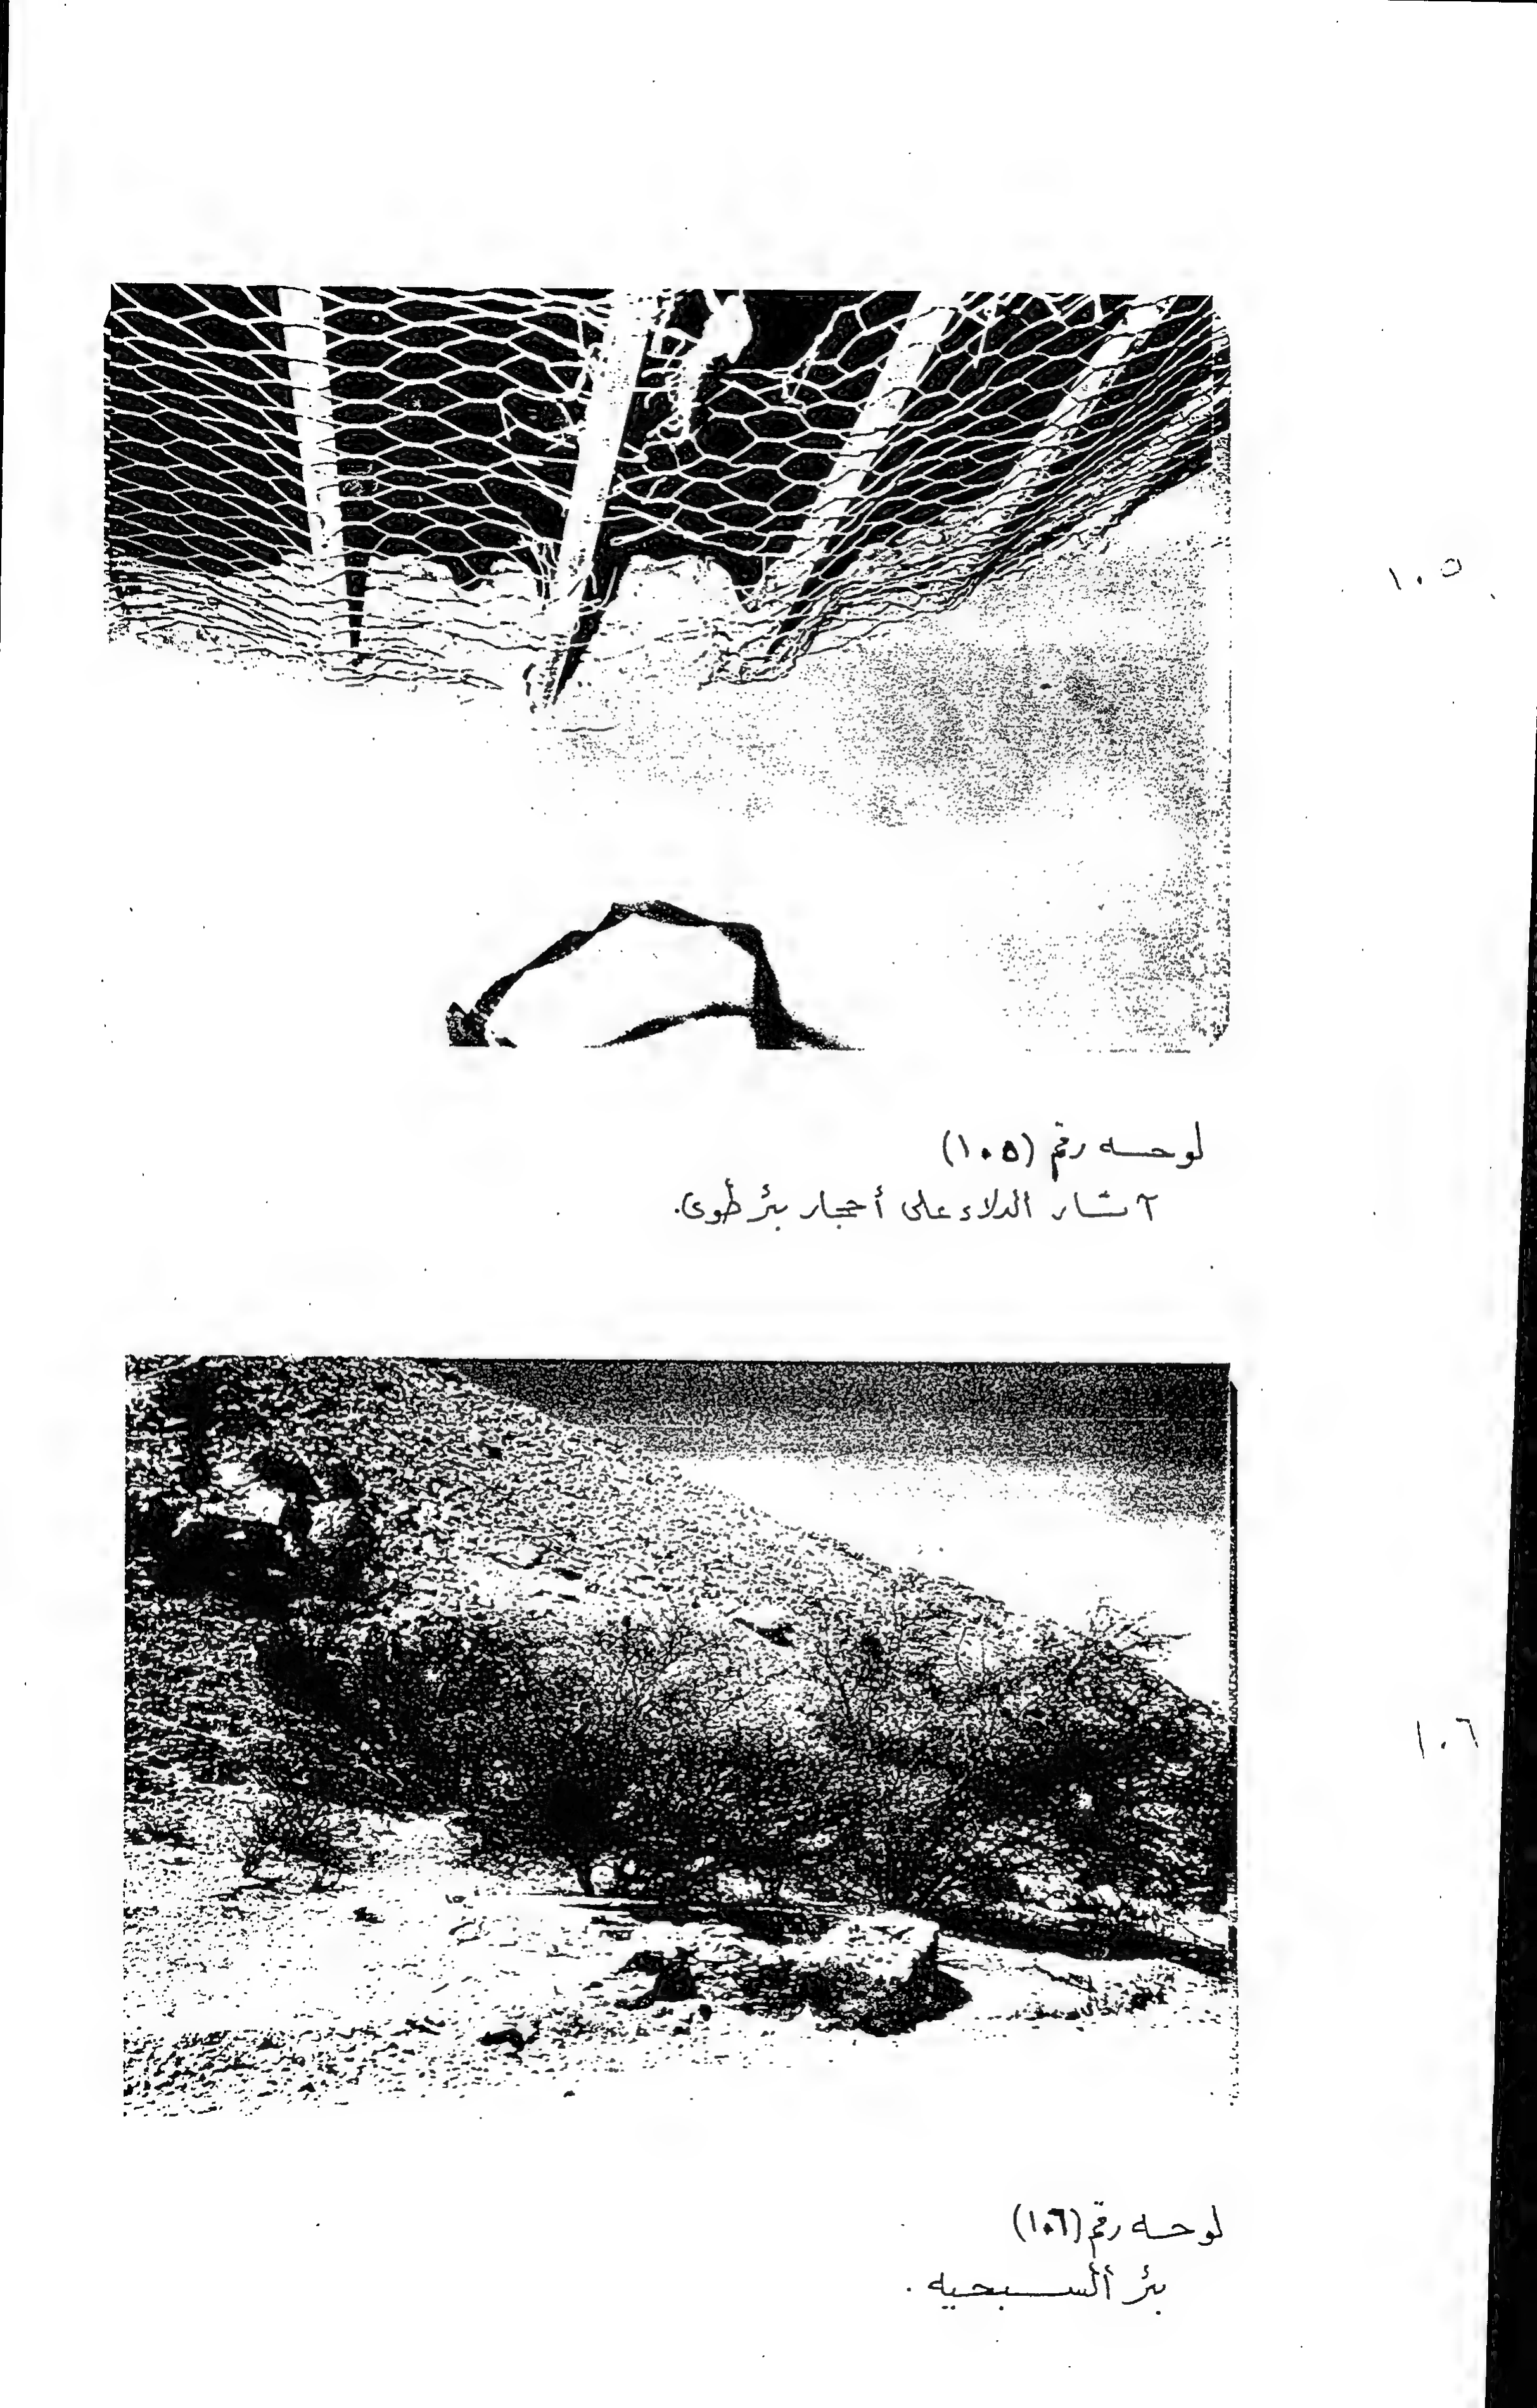 ١٠٥
لوحه رقم (١٠٥)
آثار الدلاء على أحجار بئر طوى.
١٠٦
لوحه رقم (١٠٦)
بئر السبحيه .